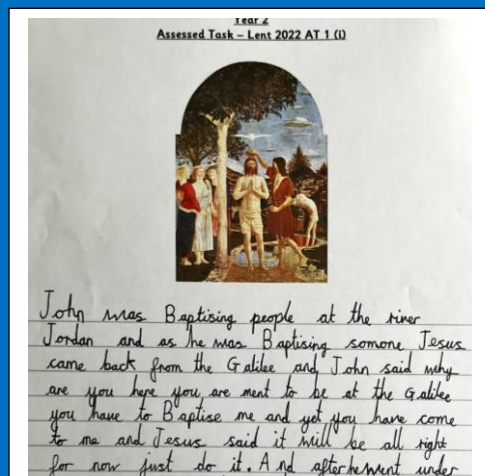 Year 2
Assessed Task – Lent 2022 AT 1 (i)
John was Baptising people at the river
Jordan and as he was Baptising somone Jesus
came back from the Galilee and John said why
are you here you are ment to be at the Galilee
you have to Baptise me and yet you have come
to me and Jesus said it will be all right
for now just do it. And after he went under